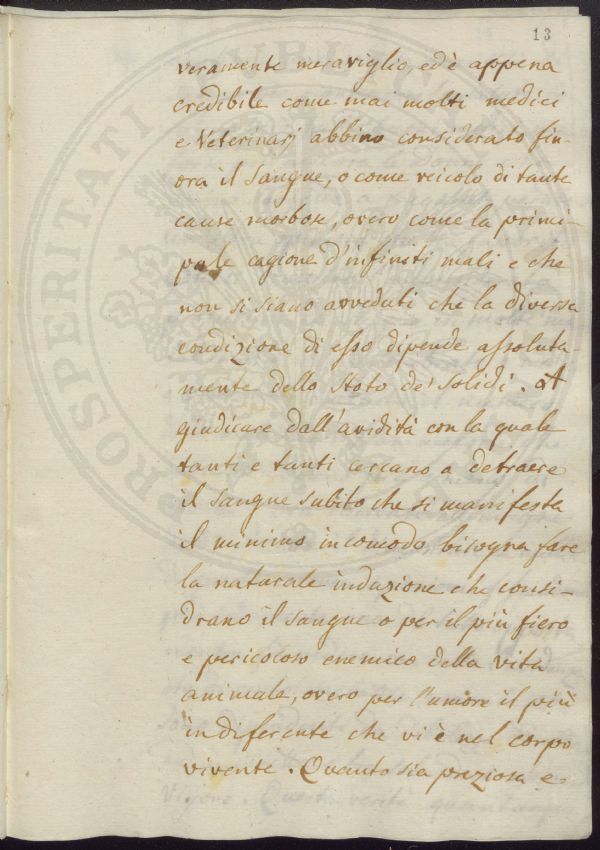 13
veramente meraviglio, ed è appena
credibile come mai molti medici
e Veterinarj abbino considerato fin-
ora il Sangue, o come veicolo di tante
cause morbose, overo come la primi-
pale cagione d'infiniti mali e che
non si siano avveduti che la diversa
condizione di esso dipende assoluta-
mente dello Stoto de' Solidi. A
giudicare dall'avidità con la quale
tanti e tanti cercano a detraere
il Sangue subito che si manifesta
il minimo incomodo, bisogna fare
la naturale induzione che consi-
drano il Sangue o per il più fiero
e pericoloso enemico della vita
animale, overo per l'umore il più
indiferente che vi è nel corpo
vivente. Quanto sia preziosa e-
PROSPERITATI PUBLI